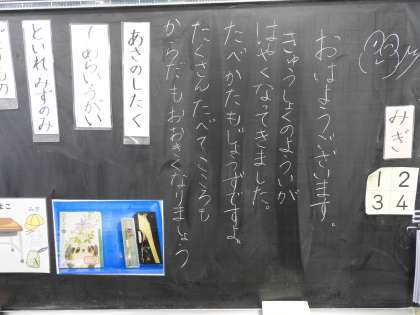 みぎ
1 2
3 4
おはようございます。
きゅうしょくのよういが
はやくなってきました。
たべかたもじょうずですよ。
たくさんたべてこころも
からだもおおきくなりましょう
あさのしたく
てあらいうがい
といれ みずのみ
もの